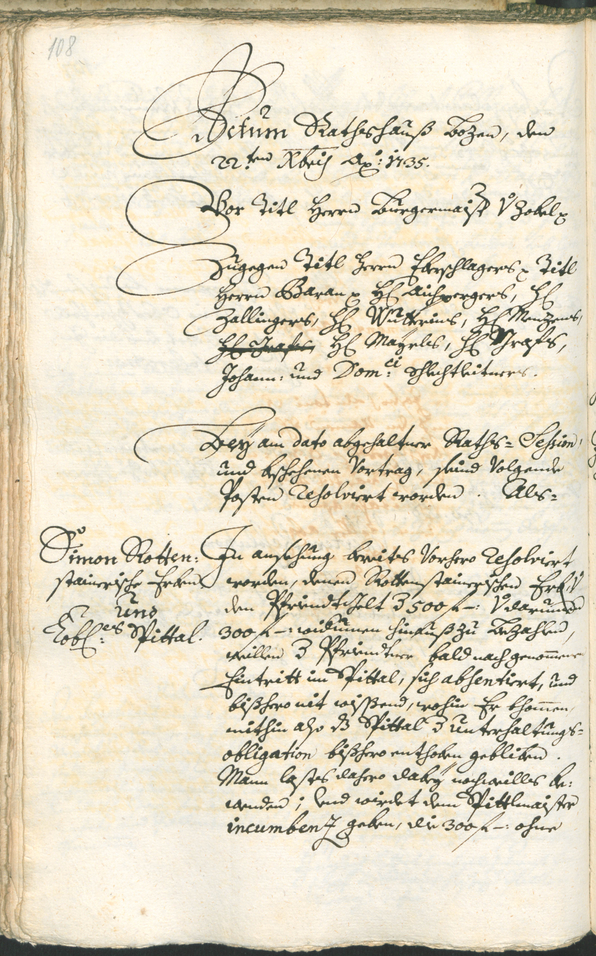 108
Actum Rathshauß Bozen, den
22ten Xbris Ao: 1735.
Vor Titl Herrn Burgermaist: V: Zobel p
Zugegen Titl Herrn Eberschlagers p Titl
Herrn Baran p H: Aichpergers, H:
Zallingers, H: Wuttrins, H: Menzens,
H: Grafs, H: Mayrles, H: Grafs,
Johann: und Dom:ci Schlechtleitners.
Bey am dato abgehaltner Raths= Session,
und beschehenen Vortrag, seind volgende
Posten resolviert worden. Als=
Simon Rotten:
stainerische Erben
und
Lobl:es Spittal.
In ansehung bereits vorhero resolviert
worden, denen Rottenstainerischen Erb:
den Pfriendtschilt 3500 f –: darunder
300 f –: widumen hinauß zu bezahlen,
willen Pfriendtner bald nach genommenen
Eintritt im Spittal, sich absentiert, und
bißhero nit wissend, wohin Er khommen,
mithin also Spittal unterhaltungs=
obligation bißhero enthoben gebliben.
Mann lasset es dahero dabey nochmalls be:
wenden; und wirdet dem Spittlmaister
incumbenz geben, die 300 f –: ohne